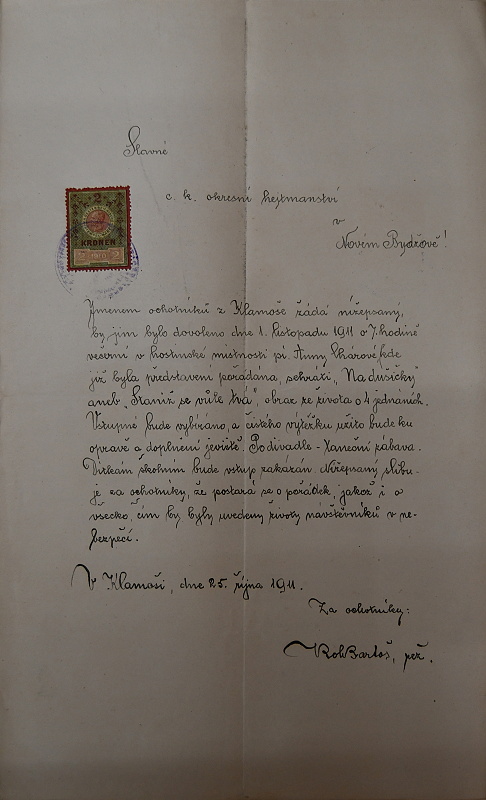 Slavné
c. k. okresní hejtmanství
v
Novém Bydžově!
2
KRONEN
1910
Jménem ochotníků z Klamoše žádá nížepsaný,
by jim bylo dovoleno dne 1. listopadu 1911 o 7. hodině
večerní v hostinské místnosti pí. Anny kde
již byla představení pořádána, sehráti „Na dušičky"
aneb „Staniž se vůle tvá", obraz ze života o 4 jednáních.
Vstupné bude vybíráno, a čistého výtěžku užito bude ku
opravě a doplnění jeviště. Po divadle - taneční zábava.
Dítkám školním bude vstup zakázán. Nížepsaný slibu-
je za ochotníky, že postará se o pořádek, jakož i o
všecko, čím by byly uvedeny životy návštěvníků v ne-
bezpečí.
V Klamoši, dne 25. října 1911.
Za ochotníky:
Bartoš,